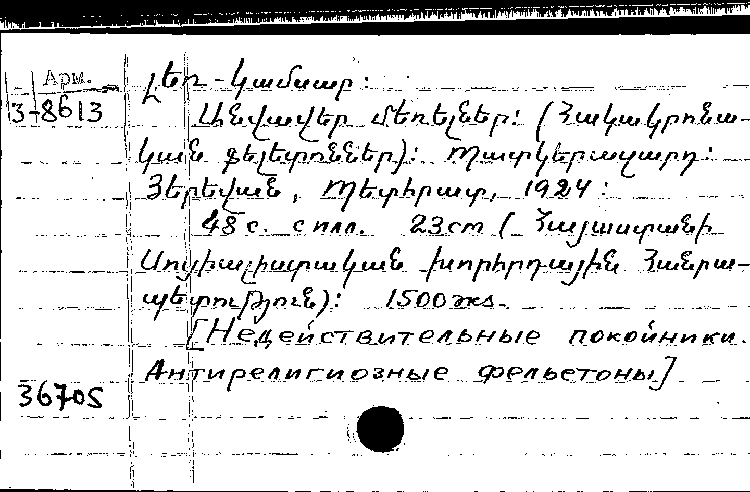 Арм.
3-8613
Լեռ-Կամսար:
Անվավեր մեռելներ: (Հակակրոնա-
կան ֆելետոններ): Պատկերազարդ:
Յերեվան, Պետհրատ, 1924:
48 с. с илл. 23cm (Հայաստանի
Սոցիալիստական Խորհրդային Հանրա-
պետություն): 1500 экз.
[Недействительные покойники.
Антирелигиозные фельетоны]
36705